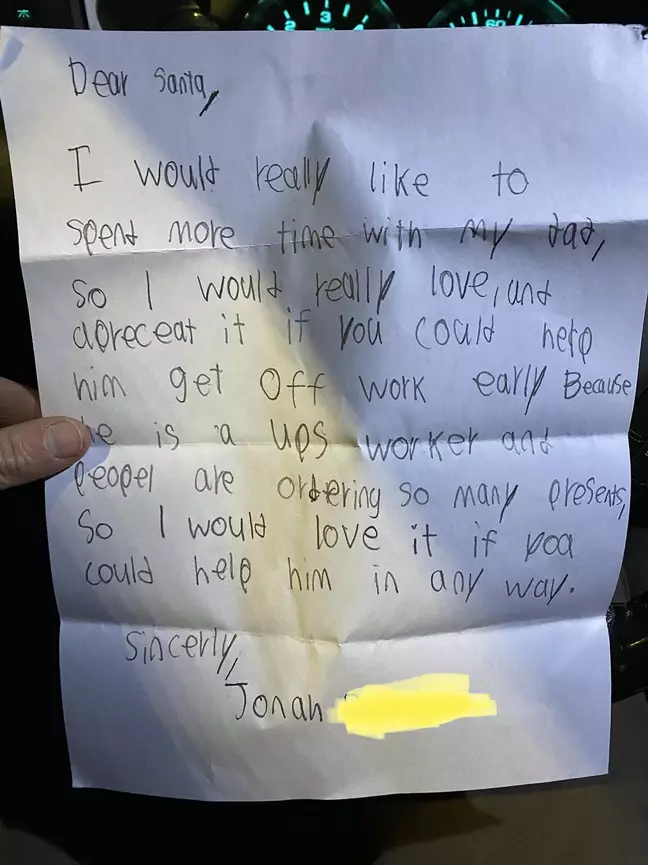 3
60
Dear Santa,
I would really like to
spent more time with my dad,
so I would really love, and
apreceat it if you could help
him get off work early Because
he is a ups worker and
peopel are ordering so many presents,
So I would love it if you
could help him in any way.
Sincerly,
Jonah